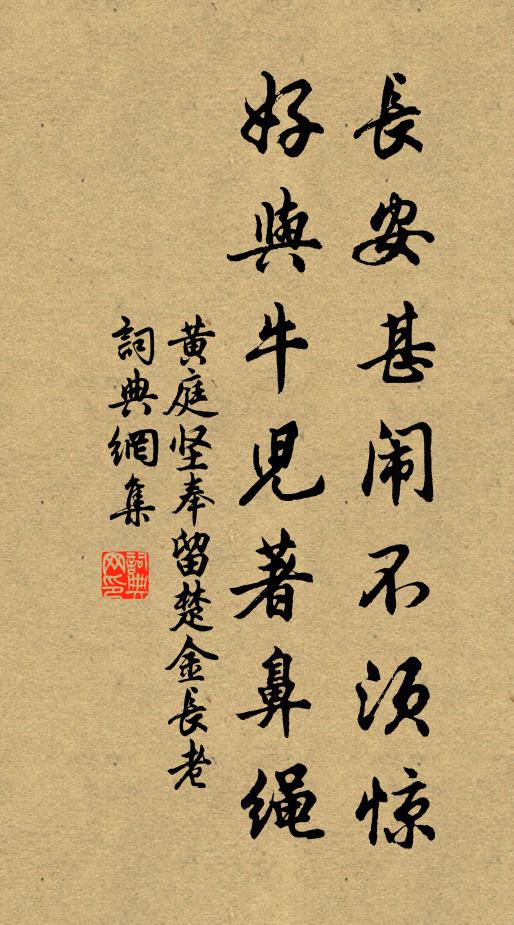 長安甚闹不須惊
好與牛児著鼻绳
黄庭坚奉留楚金長老
詞典網集
詞典
网印